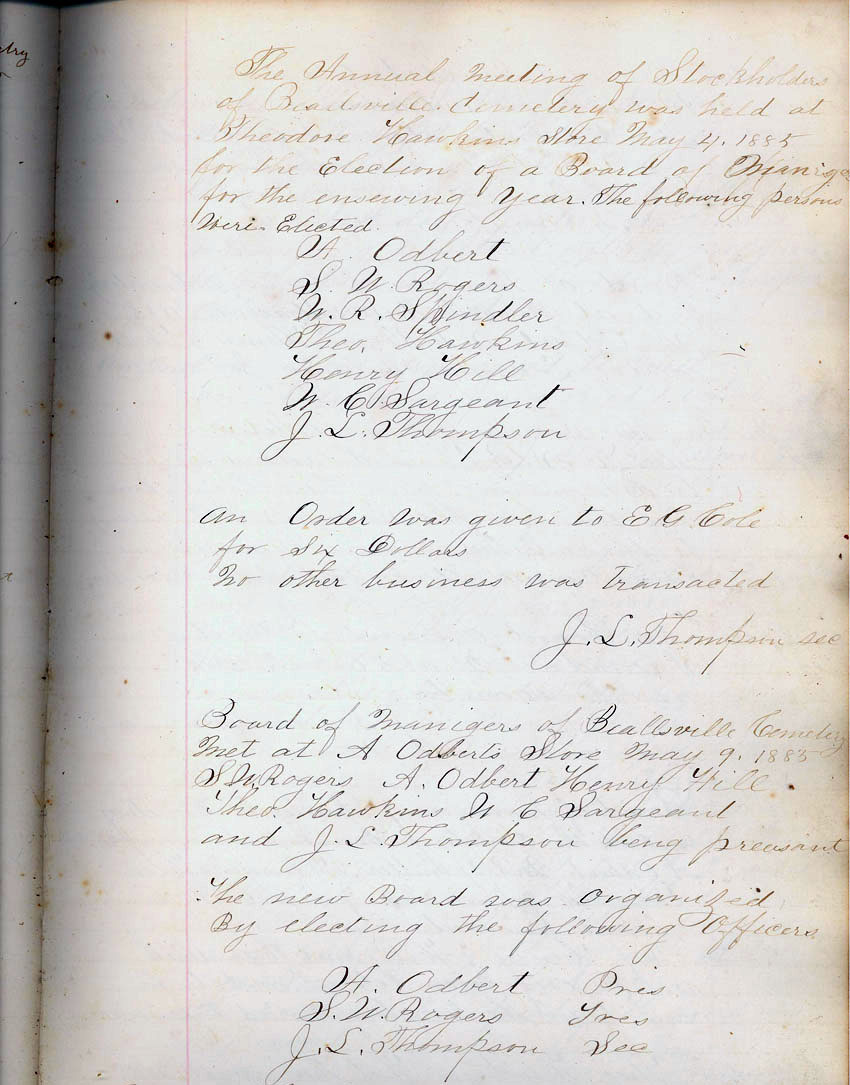 The Annual Meeting of Stockholders
of Beallsville Cemetery was held at
Theodore Hawkins Store May 4. 1885
for the Election of a Board of Manige
for the ensewing Year. The following persons
Were Elected.
A. Odbert
S. W. Rogers
W. R. Spindler
Theo. Hawkins
Henry Hill
W. C. Sargeant
J. L. Thompson
An Order was given to E G Cole
for Six Dollars
No other business was transacted
J. L. Thompson sec
Board of Manigers of Beallsville Cemetery
Met at A Odberts Store May 9. 1885
S. W. Rogers A. Odbert Henry Hill
Theo. Hawkins W C Sargeant
and J. L Thompson being preasant
The new Board was organized
By electing the following Officers
A. Odbert Pres
S. W. Rogers Tres
J. L. Thompson Sec